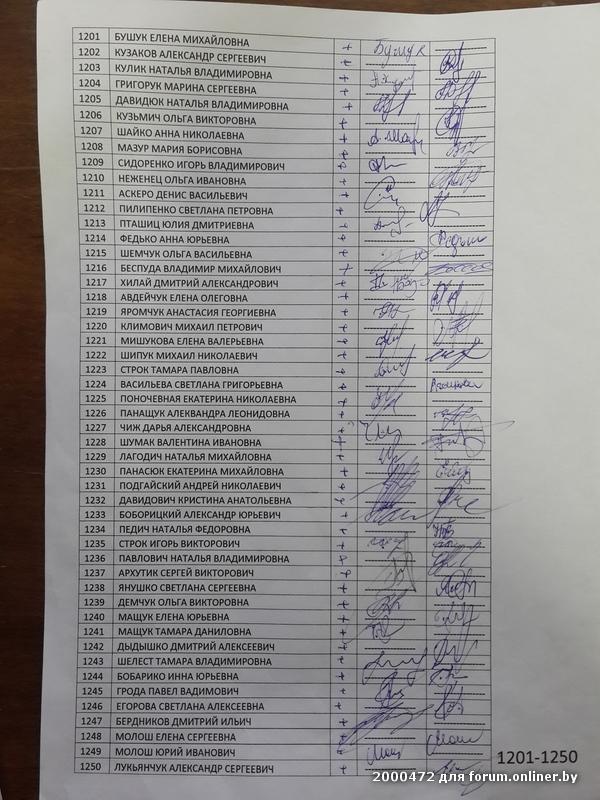 1201 БУШУК ЕЛЕНА МИХАЙЛОВНА + Бушук
1202 КУЗАКОВ АЛЕКСАНДР СЕРГЕЕВИЧ +
1203 КУЛИК НАТАЛЬЯ ВЛАДИМИРОВНА +
1204 ГРИГОРУК МАРИНА СЕРГЕЕВНА +
1205 ДАВИДЮК НАТАЛЬЯ ВЛАДИМИРОВНА +
1206 КУЗЬМИЧ ОЛЬГА ВИКТОРОВНА +
1207 ШАЙКО АННА НИКОЛАЕВНА +
1208 МАЗУР МАРИЯ БОРИСОВНА +
1209 СИДОРЕНКО ИГОРЬ ВЛАДИМИРОВИЧ +
1210 НЕЖЕНЕЦ ОЛЬГА ИВАНОВНА +
1211 АСКЕРО ДЕНИС ВАСИЛЬЕВИЧ +
1212 ПИЛИПЕНКО СВЕТЛАНА ПЕТРОВНА +
1213 ПТАШИЦ ЮЛИЯ ДМИТРИЕВНА +
1214 ФЕДЬКО АННА ЮРЬЕВНА +
1215 ШЕМЧУК ОЛЬГА ВАСИЛЬЕВНА +
1216 БЕСПУДА ВЛАДИМИР МИХАЙЛОВИЧ +
1217 ХИЛАЙ ДМИТРИЙ АЛЕКСАНДРОВИЧ +
1218 АВДЕЙЧУК ЕЛЕНА ОЛЕГОВНА +
1219 ЯРОМЧУК АНАСТАСИЯ ГЕОРГИЕВНА +
1220 КЛИМОВИЧ МИХАИЛ ПЕТРОВИЧ +
1221 МИШУКОВА ЕЛЕНА ВАЛЕРЬЕВНА +
1222 ШИПУК МИХАИЛ НИКОЛАЕВИЧ +
1223 СТРОК ТАМАРА ПАВЛОВНА +
1224 ВАСИЛЬЕВА СВЕТЛАНА ГРИГОРЬЕВНА +
1225 ПОНОЧЕВНАЯ ЕКАТЕРИНА НИКОЛАЕВНА +
1226 ПАНАЩУК АЛЕКВАНДРА ЛЕОНИДОВНА +
1227 ЧИЖ ДАРЬЯ АЛЕКСАНДРОВНА +
1228 ШУМАК ВАЛЕНТИНА ИВАНОВНА +
1229 ЛАГОДИЧ НАТАЛЬЯ МИХАЙЛОВНА +
1230 ПАНАСЮК ЕКАТЕРИНА МИХАЙЛОВНА +
1231 ПОДГАЙСКИЙ АНДРЕЙ НИКОЛАЕВИЧ +
1232 ДАВИДОВИЧ КРИСТИНА АНАТОЛЬЕВНА +
1233 БОБОРИЦКИЙ АЛЕКСАНДР ЮРЬЕВИЧ +
1234 ПЕДИЧ НАТАЛЬЯ ФЕДОРОВНА +
1235 СТРОК ИГОРЬ ВИКТОРОВИЧ +
1236 ПАВЛОВИЧ НАТАЛЬЯ ВЛАДИМИРОВНА +
1237 АРХУТИК СЕРГЕЙ ВИКТОРОВИЧ +
1238 ЯНУШКО СВЕТЛАНА СЕРГЕЕВНА +
1239 ДЕМЧУК ОЛЬГА ВИКТОРОВНА +
1240 МАЩУК ЕЛЕНА ЮРЬЕВНА +
1241 МАЩУК ТАМАРА ДАНИЛОВНА +
1242 ДЫДЫШКО ДМИТРИЙ АЛЕКСЕЕВИЧ +
1243 ШЕЛЕСТ ТАМАРА ВЛАДИМИРОВНА +
1244 БОБАРИКО ИННА ЮРЬЕВНА +
1245 ГРОДА ПАВЕЛ ВАДИМОВИЧ +
1246 ЕГОРОВА СВЕТЛАНА АЛЕКСЕЕВНА +
1247 БЕРДНИКОВ ДМИТРИЙ ИЛЬИЧ +
1248 МОЛОШ ЕЛЕНА СЕРГЕЕВНА +
1249 МОЛОШ ЮРИЙ ИВАНОВИЧ +
1250 ЛУКЬЯНЧУК АЛЕКСАНДР СЕРГЕЕВИЧ +
1201-1250
2000472 для forum.onliner.by